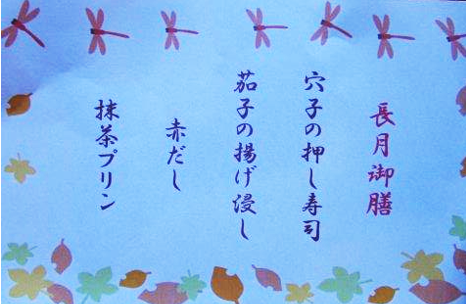 長月御膳
穴子の押し寿司
茄子の揚げ浸し
赤だし
抹茶プリン